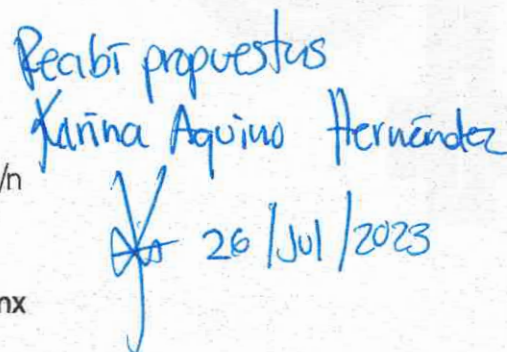 Recibí propuestas
Karina Aquino Hernández
/n
26/Jul/2023
nx